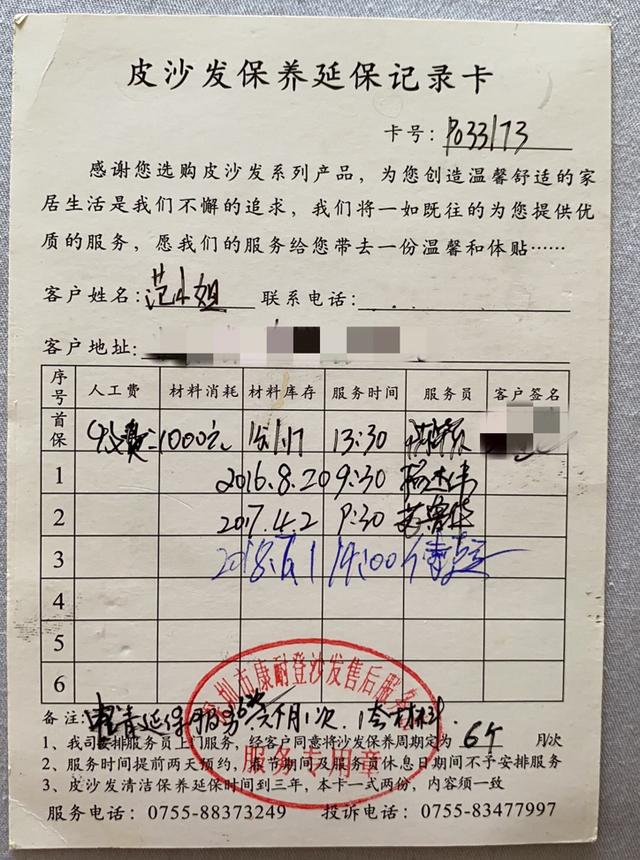 皮沙发保养延保记录卡
卡号：P033173
感谢您选购皮沙发系列产品，为您创造温馨舒适的家
居生活是我们不懈的追求，我们将一如既往的为您提供优
质的服务，愿我们的服务给您带去一份温馨和体贴……
客户姓名：范小姐 联系电话：
客户地址：
序号 人工费 材料消耗 材料库存 服务时间 服务员 客户签名
首保 收费：1000元 13:30
1 2016.8.20 9:30
2 2017.4.2 9:30
3 2018.6.1 14:00
4
5
6
深圳市康耐登沙发售后服务
服务专用章
备注：申请延保服务6次 六个月1次，1套材料.
1、我司安排服务员上门服务，经客户同意将沙发保养周期定为 6个 月/次
2、服务时间提前两天预约，春节期间及服务员休息日期间不予安排服务
3、皮沙发清洁保养延保时间到三年，本卡一式两份，内容须一致
服务电话：0755-88373249 投诉电话：0755-83477997